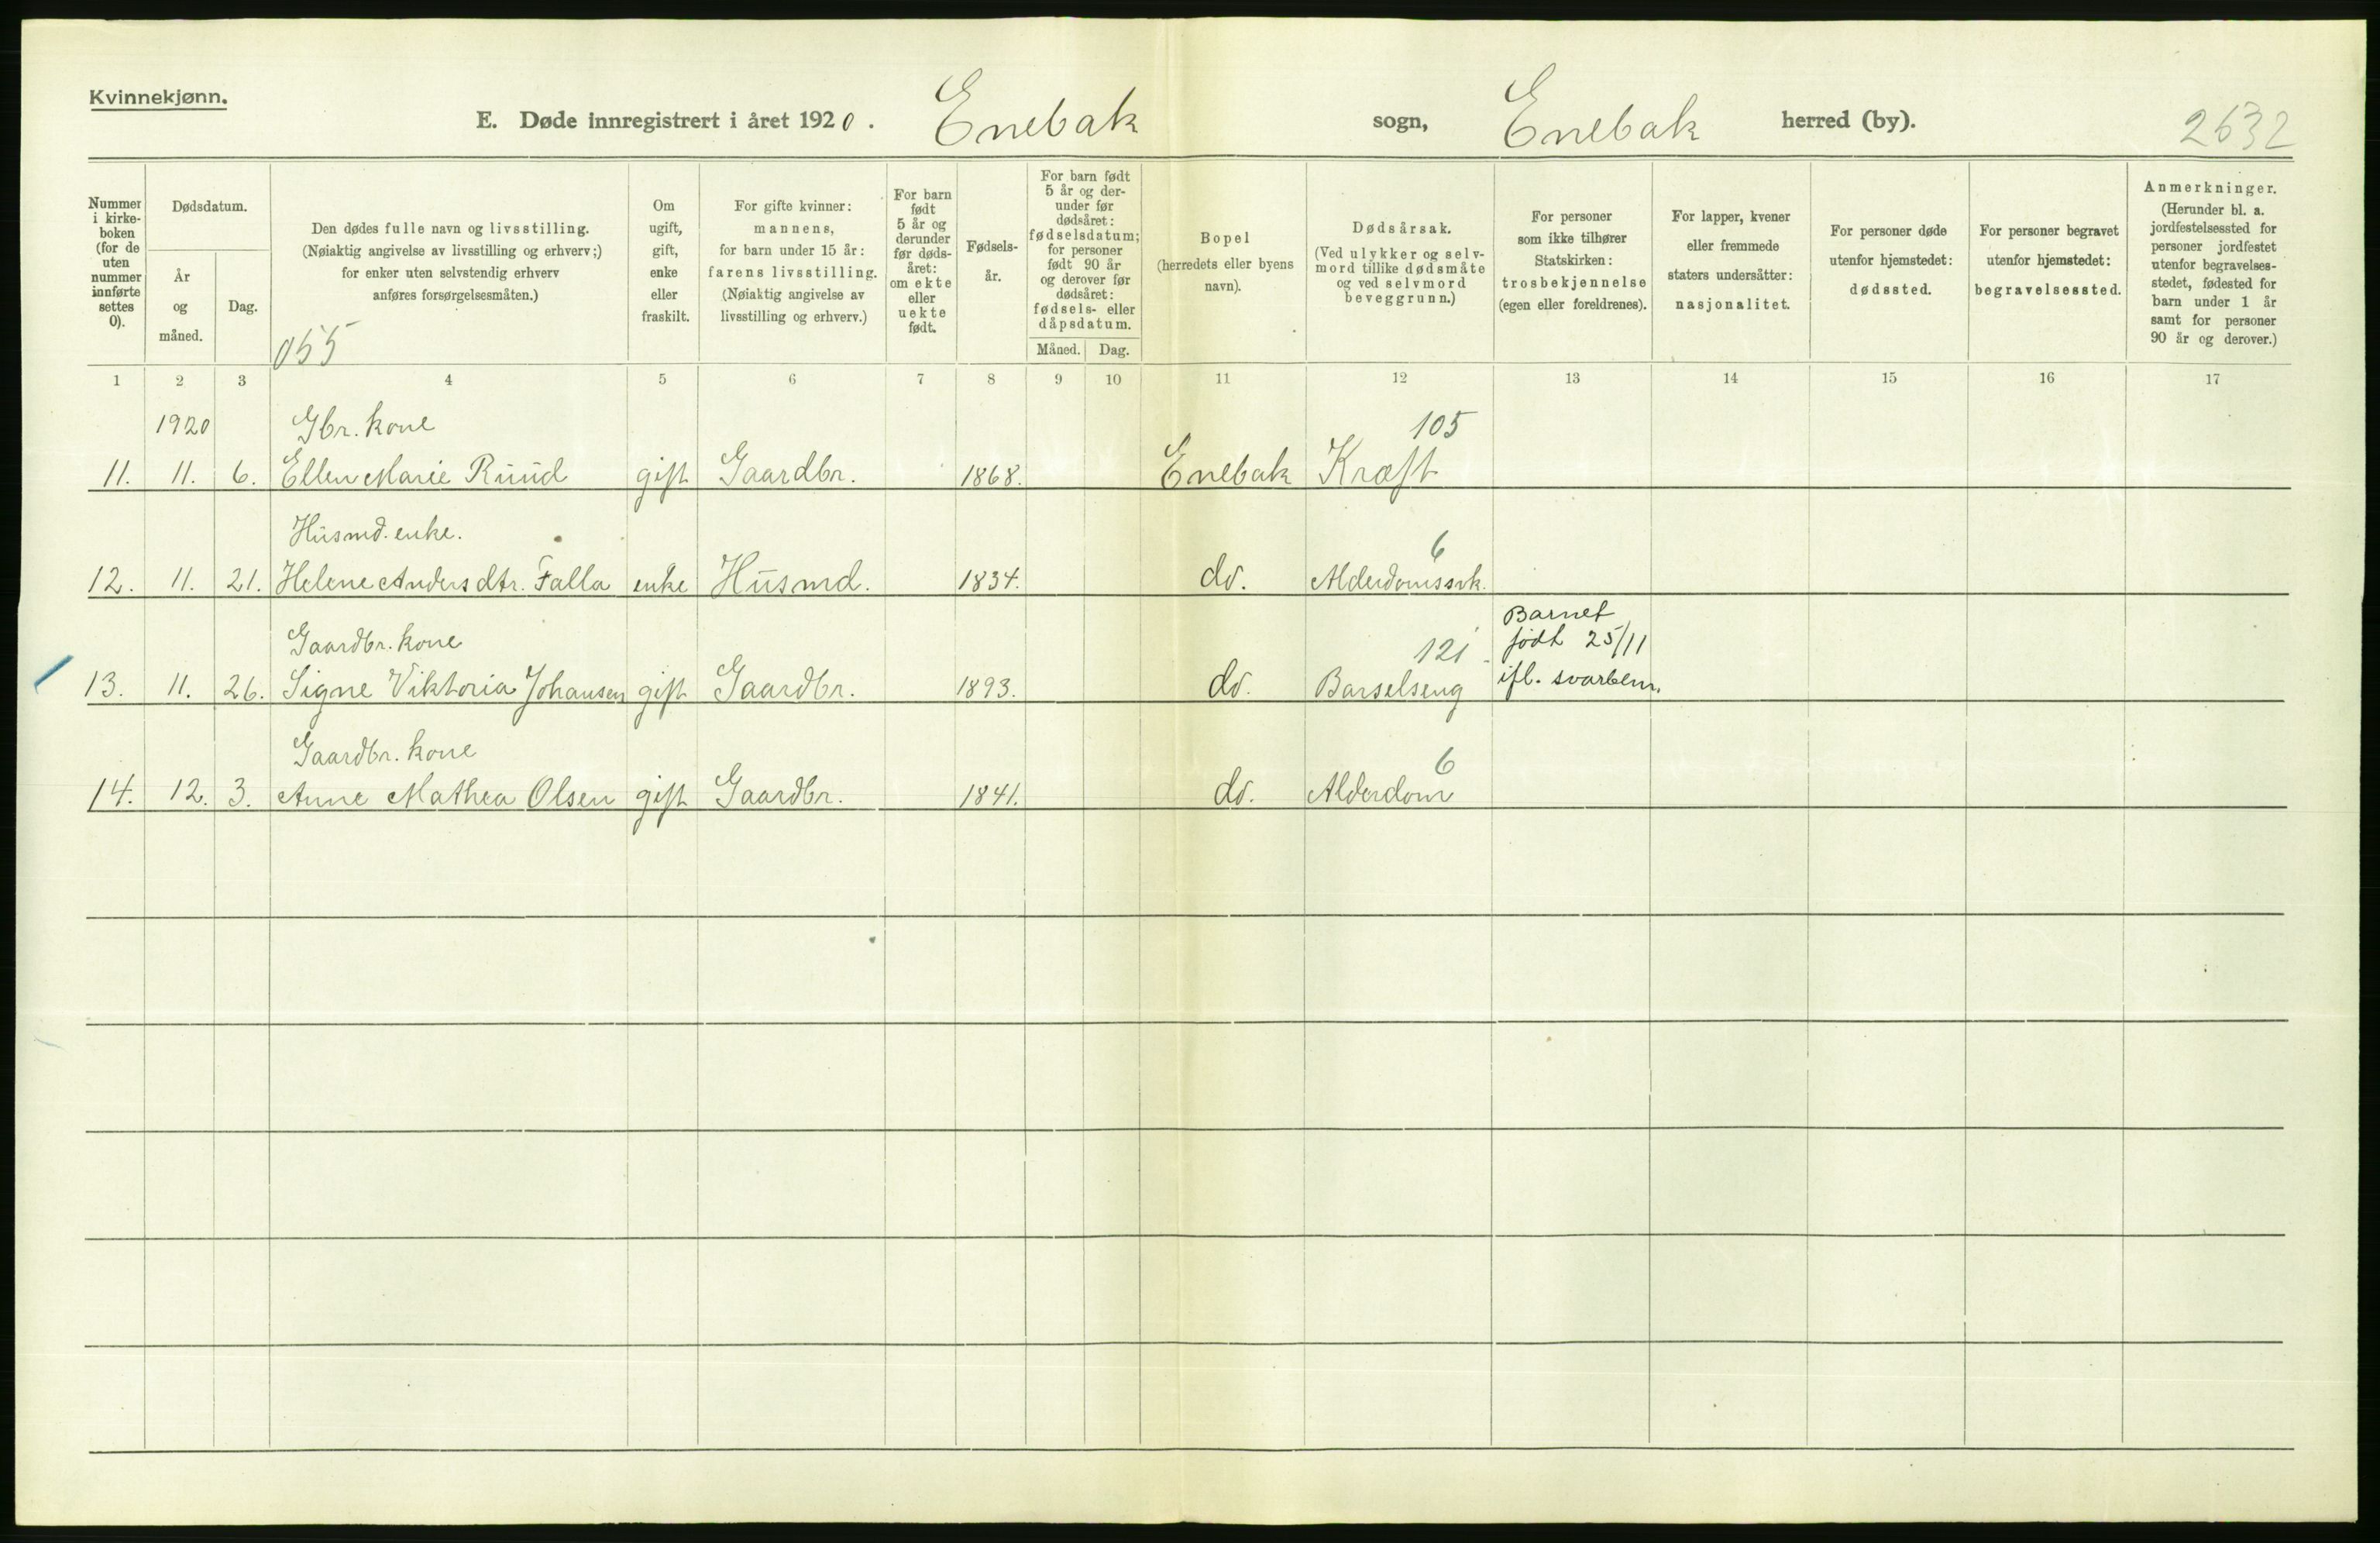 Kvinnekjønn.
E. Døde innregistrert i året 1920. Enebak sogn, Enebak herred (by). 2632
Nummer i kirke-boken (for de uten nummer innførte settes 0).
Dødsdatum.
År og måned.
Dag.
Den dødes fulle navn og livsstilling.
(Nøiaktig angivelse av livsstilling og erhverv;)
for enker uten selvstendig erhverv
anføres forsørgelsesmåten.)
055
Om
ugift,
gift,
enke
eller
fraskilt.
For gifte kvinner:
mannens,
for barn under 15 år:
farens livsstilling.
(Nøiaktig angivelse av
livsstilling og erhverv.)
For barn
født
5 år og
derunder
før døds-
året:
om ekte
eller
uekte
født.
Fødsels-
år.
For barn født
5 år og der-
under før
dødsåret:
fødselsdatum;
for personer
født 90 år
og derover før
dødsåret:
fødsels- eller
dåpsdatum.
Måned. Dag.
Bopel
(herredets eller byens
navn).
Dødsårsak.
(Ved ulykker og selv-
mord tillike dødsmåte
og ved selvmord
beveggrunn.)
For personer
som ikke tilhører
Statskirken:
trosbekjennelse
(egen eller foreldrenes).
For lapper, kvener
eller fremmede
staters undersåtter:
nasjonalitet.
For personer døde
utenfor hjemstedet:
dødssted.
For personer begravet
utenfor hjemstedet:
begravelsessted.
Anmerkninger.
(Herunder bl. a.
jordfestelsessted for
personer jordfestet
utenfor begravelses-
stedet, fødested for
barn under 1 år
samt for personer
90 år og derover.)
1 2 3 4 5 6 7 8 9 10 11 12 13 14 15 16 17
1920 Gbr. kone 105
11. 11. 6. Ellen Marie Ruud gift Gaardbr. 1868. Enebak Kræft
Husmd. enke. 6
12. 11. 21. Helene Andersdtr. Falla enke Husmd. 1834. do. Alderdomssvk.
Gaardbr. kone 121
13. 11. 26. Signe Viktoria Johansen gift Gaardbr. 1893. do. Barselseng
Barnet
født 25/11
ifl. svarbem.
Gaardbr. kone 6
14. 12. 3. Anne Mathea Olsen gift Gaardbr. 1841. do. Alderdom